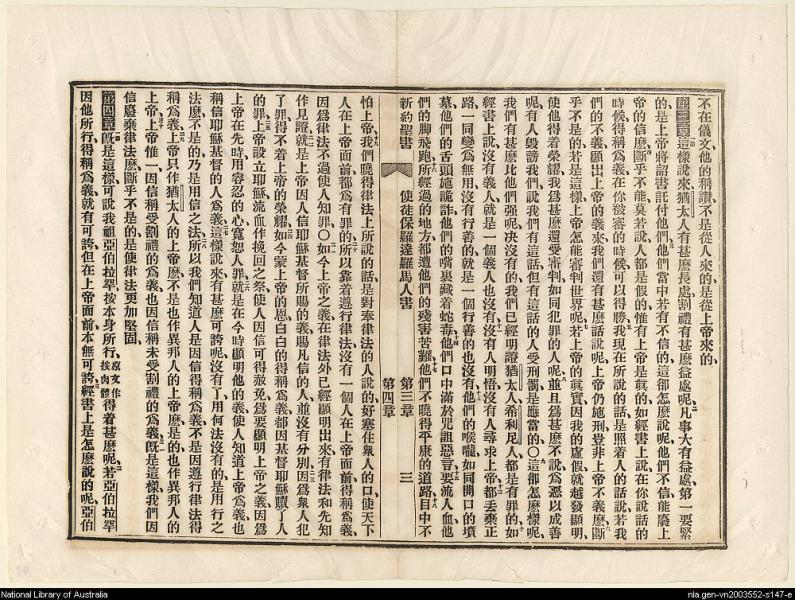 不在儀文他的稱讚不是從人來的是從上帝來的
第三章這樣說來猶太人有甚麼長處割禮有甚麼益處呢凡事大有益處第一要緊
的是上帝將詔書託付他們他們當中若有不信的這卻怎麼說呢他們不信能廢上
帝的信麼斷乎不能寧可莫若說人都是假的惟有上帝是真的如經書上說在你說話的
時候得稱爲義在你被審的時候可以得勝我現在所說的話是照着人的話說若我
們的不義顯出上帝的義來我們還有甚麼話說呢上帝仍施刑豈非上帝不義麼斷
乎不是的若是這樣上帝怎能審判世界呢若上帝的真實因我的虛假就越發顯明
使他得着榮耀我爲甚麼還受審判如同犯罪的人呢並且爲甚麼不說爲惡以成善
呢有人毀謗我們說我們有這話但有這話的人受刑罰是應當的○這卻怎麼樣呢
我們有甚麼比他們强呢決沒有的我們已經明證猶太人希利尼人都是有罪的如
經書上說沒有義人就是一個義人也沒有沒有人明悟沒有人尋求上帝都丟棄正
路一同變爲無用沒有行善的就是一個行善的也沒有他們的喉嚨如同開口的墳
墓他們的舌頭施詭詐他們的嘴裏藏着蛇毒他們口中滿於咒詛惡言要流人血他
們的脚飛跑所經過的地方都遭他們的殘害苦難他們不曉得平康的道路目中不
新約聖書 使徒保羅達羅馬人書 第三章 第四章 三
怕上帝我們曉得律法上所說的話是對奉律法的人說的好塞住衆人的口使天下
人在上帝面前都爲有罪的所以靠着遵行律法沒有一個人在上帝面前得稱爲義
因爲律法不過使人知罪○如今上帝之義在律法外已經顯明出來有律法和先知
作見證就是上帝因人信耶穌基督所賜的義賜凡信的人並沒有分別因爲衆人犯
了罪得不着上帝的榮耀如今蒙上帝的恩白白的得稱爲義都因基督耶穌贖了人
的罪上帝設立耶穌流血作挽回之祭使人因信可得赦免爲要顯明上帝之義因爲
上帝在先時用容忍的心寬恕人罪就是在今時顯明他的義使人知道上帝爲義也
稱信耶穌基督的人爲義這樣說來有甚麼可誇呢沒有了用何法沒有的是用行之
法麼不是的乃是用信之法所以我們知道人是因信得稱爲義不是因遵行律法得
稱爲義上帝只作猶太人的上帝麼不是也作異邦人的上帝麼是的也作異邦人的
上帝上帝惟一因信稱受割禮的爲義也因信稱未受割禮的爲義旣是這樣我們因
信廢棄律法麼斷乎不是的是使律法更加堅固
第四章旣是這樣可說我祖亞伯拉罕按本身所行原文作按肉體得着甚麼呢若亞伯拉罕
因他所行得稱爲義就有可誇但在上帝面前本無可誇經書上是怎麼說的呢亞伯
National Library of Australia
nla.gen-vn2003552-s147-e